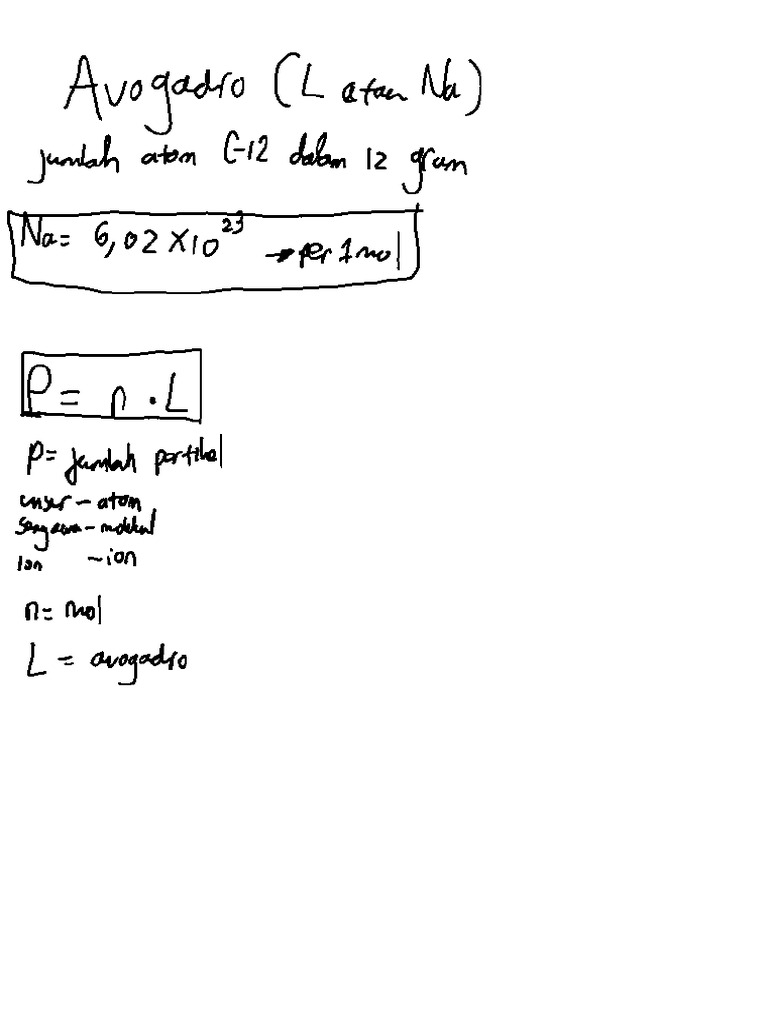 Avogadro (L atau Na)
jumlah atom C-12 dalam 12 gram
Na = 6,02 × 10²³ → per 1 mol
P = n · L
P = jumlah partikel
unsur - atom
Senyawa - molekul
Ion - ion
n = mol
L = avogadro